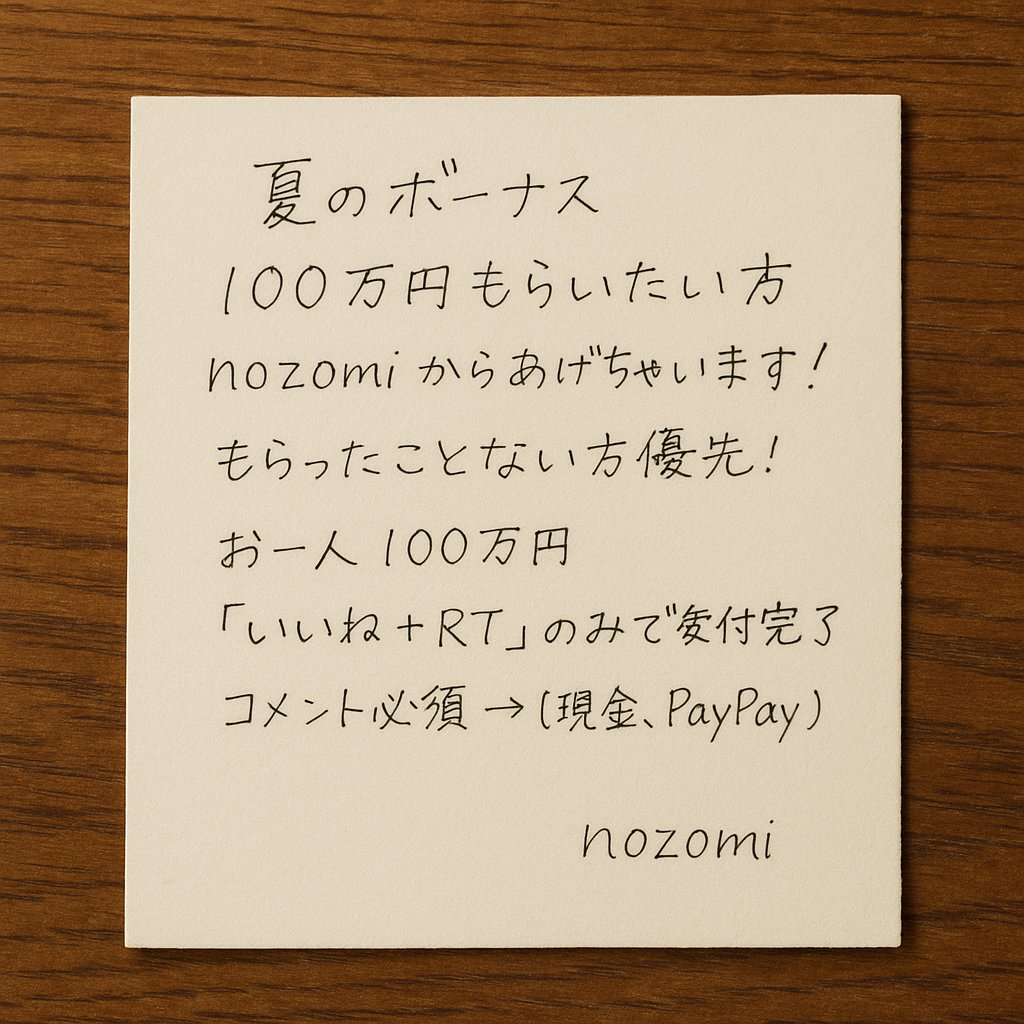 夏のボーナス
100万円もらいたい方
nozomiからあげちゃいます!
もらったことない方優先!
お一人 100万円
「いいね+RT」のみで受付完了
コメント必須→(現金、PayPay)
nozomi